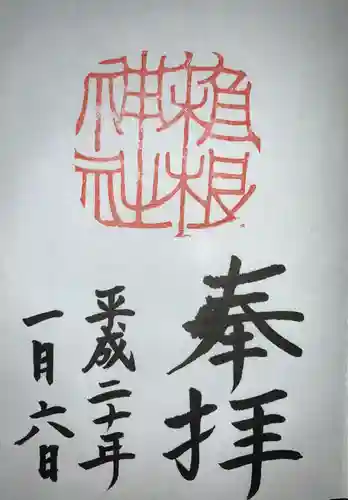 植根
神社
奉拝
平成二十年
一月六日